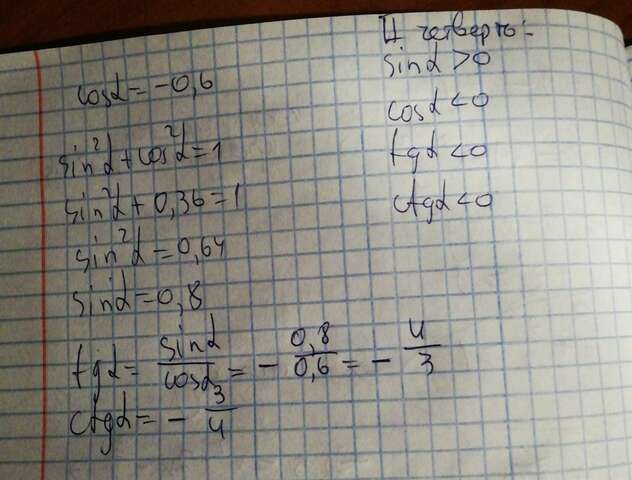 cosα = -0,6
sin²α + cos²α = 1
sin²α + 0,36 = 1
sin²α = 0,64
sinα = 0,8
tgα = sinα/cosα = - 0,8/0,6 = - 4/3
ctgα = - 3/4
II четверть:
sinα > 0
cosα < 0
tgα < 0
ctgα < 0